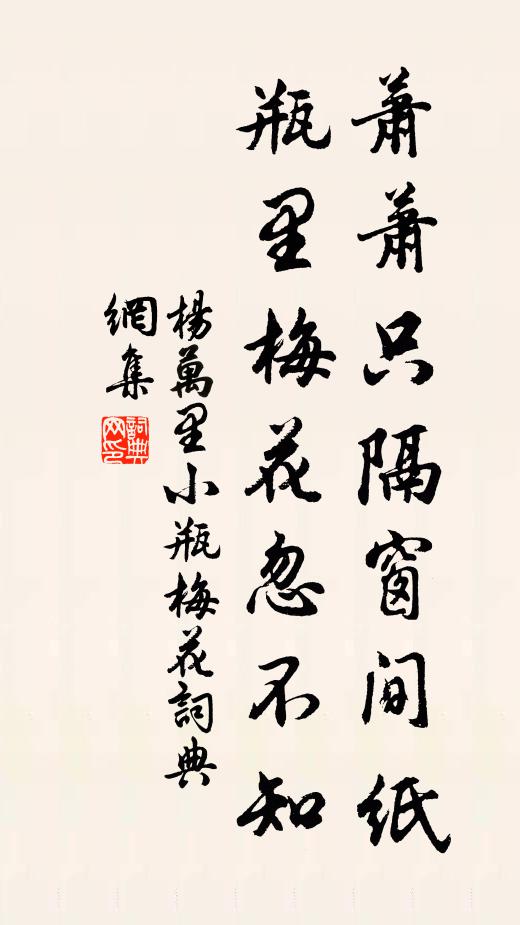 蕭蕭只隔窗间紙
瓶里梅花忽不知
楊萬里小瓶梅花詞典
網集
詞典
网印